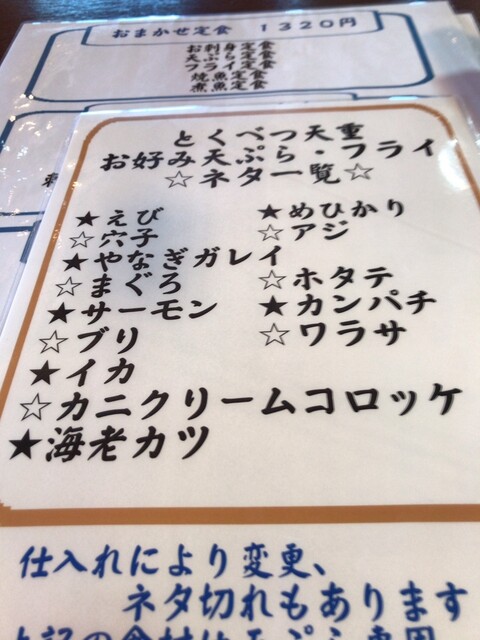 おまかせ定食 1320円
お刺身定食
天ぷら定食
フライ定食
焼魚定食
煮魚定食
とくべつ天重
お好み天ぷら・フライ
☆ネタ一覧☆
★えび
★めひかり
☆穴子
☆アジ
★やなぎガレイ
☆まぐろ
☆ホタテ
★サーモン
★カンパチ
☆ブリ
☆ワラサ
★イカ
☆カニクリームコロッケ
★海老カツ
仕入れにより変更、
ネタ切れもあります